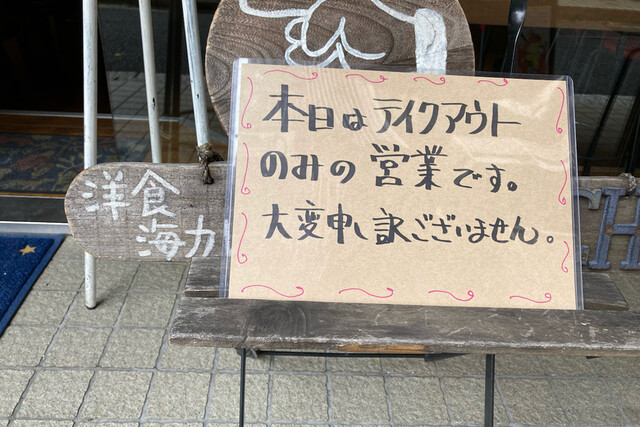 本日はテイクアウト
のみの営業です。
大変申し訳ございません。
洋食
海力
CH